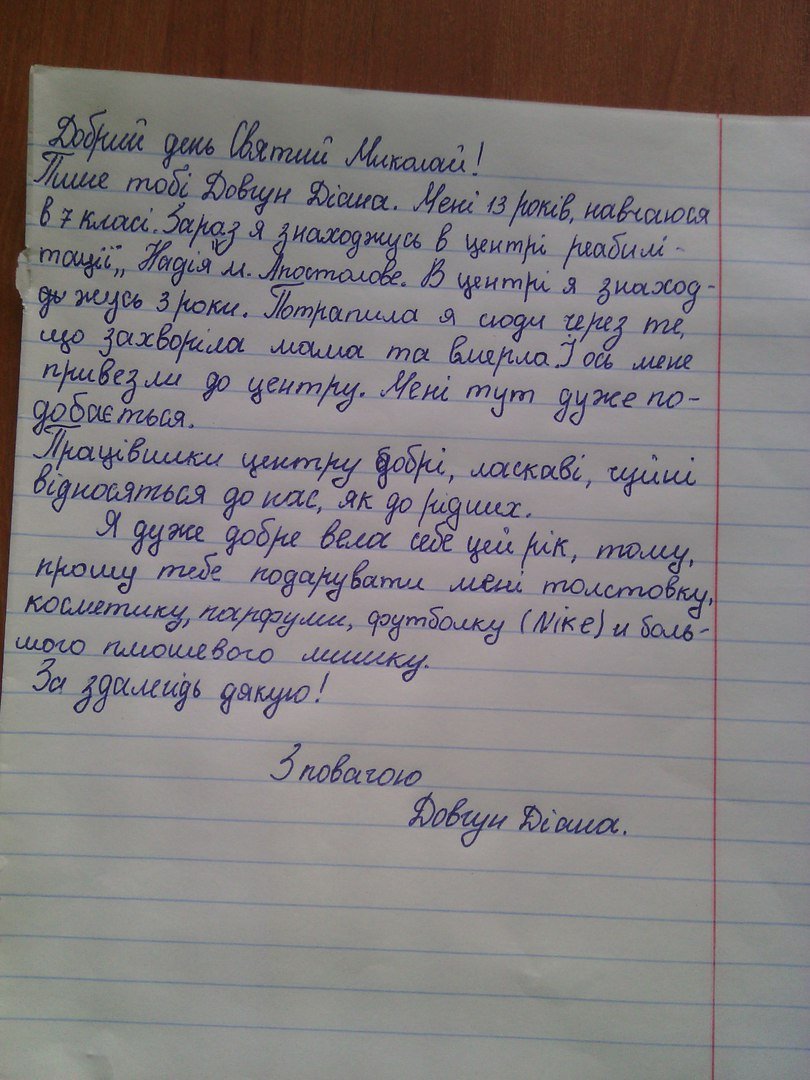 Добрий день Святий Миколай!
Пише тобі Довгун Діана. Мені 13 років, навчаюся
в 7 класі. Зараз я знаходжусь в центрі реабилі-
тації „Надія м. Апостолове. В центрі я знаход-
жусь 3 роки. Потрапила я сюди через те,
що захворіла мама та вмерла. І ось мене
привезли до центру. Мені тут дуже по-
добається.
Працівники центру добрі, ласкаві, чуйні
відносяться до нас, як до рідних.
Я дуже добре вела себе цей рік, тому,
прошу тебе подарувати мені толстовку,
косметику, парфуми, футболку (Nike) и боль-
шого плюшевого мишку.
За здалегідь дякую!
З повагою
Довгун Діана.